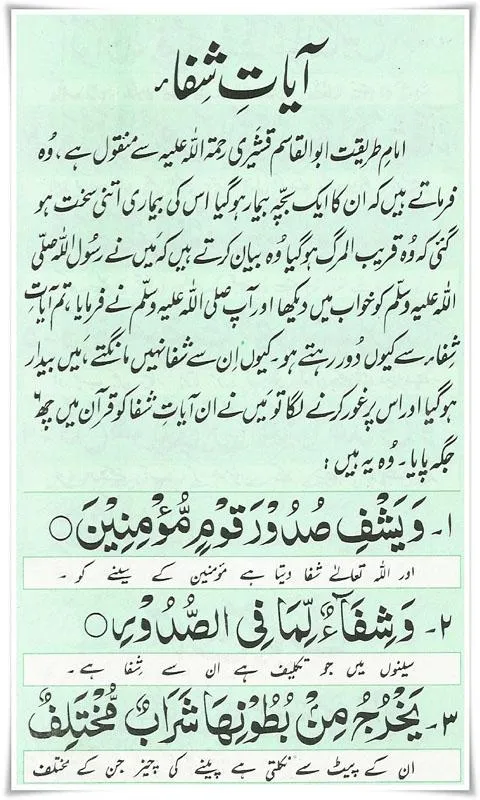 آیاتِ شِفاء
امام طریقت ابوالقاسم قشیری رحمۃ اللہ علیہ سے منقول ہے، وُہ
فرماتے ہیں کہ ان کا ایک بچّہ بیمار ہوگیا اس کی بیماری اتنی سخت ہو
گئی کہ وُہ قریب المرگ ہوگیا وُہ بیان کرتے ہیں کہ مَیں نے رسُول اللہ صلّی
اللہ علیہ وسلّم کو خواب میں دیکھا اور آپ صلی اللہ علیہ وسلّم نے فرمایا، تم آیاتِ
شِفاء سے کیوں دُور رہتے ہو۔ کیوں اِن سے شفا نہیں مانگتے، مَیں بیدار
ہوگیا اور اس پر غور کرنے لگا تو مَیں نے ان آیاتِ شفا کو قرآن میں چھ ۶
جگہ پایا۔ وُہ یہ ہیں:
۱۔ وَيَشْفِ صُدُوْرَ قَوْمٍ مُّؤْمِنِيْنَ ○
اور اللہ تعالےٰ شفا دیتا ہے مؤمنین کے سینے کو ۔
۲۔ وَشِفَآءٌ لِّمَا فِى الصُّدُوْرِ ○
سینوں میں جو تکلیف ہے ان سے شِفا ہے۔
۳۔ يَخْرُجُ مِنْۢ بُطُوْنِهَا شَرَابٌ مُّخْتَلِفٌ
ان کے پیٹ سے نکلتی ہے پینے کی چیز جن کے مختلف